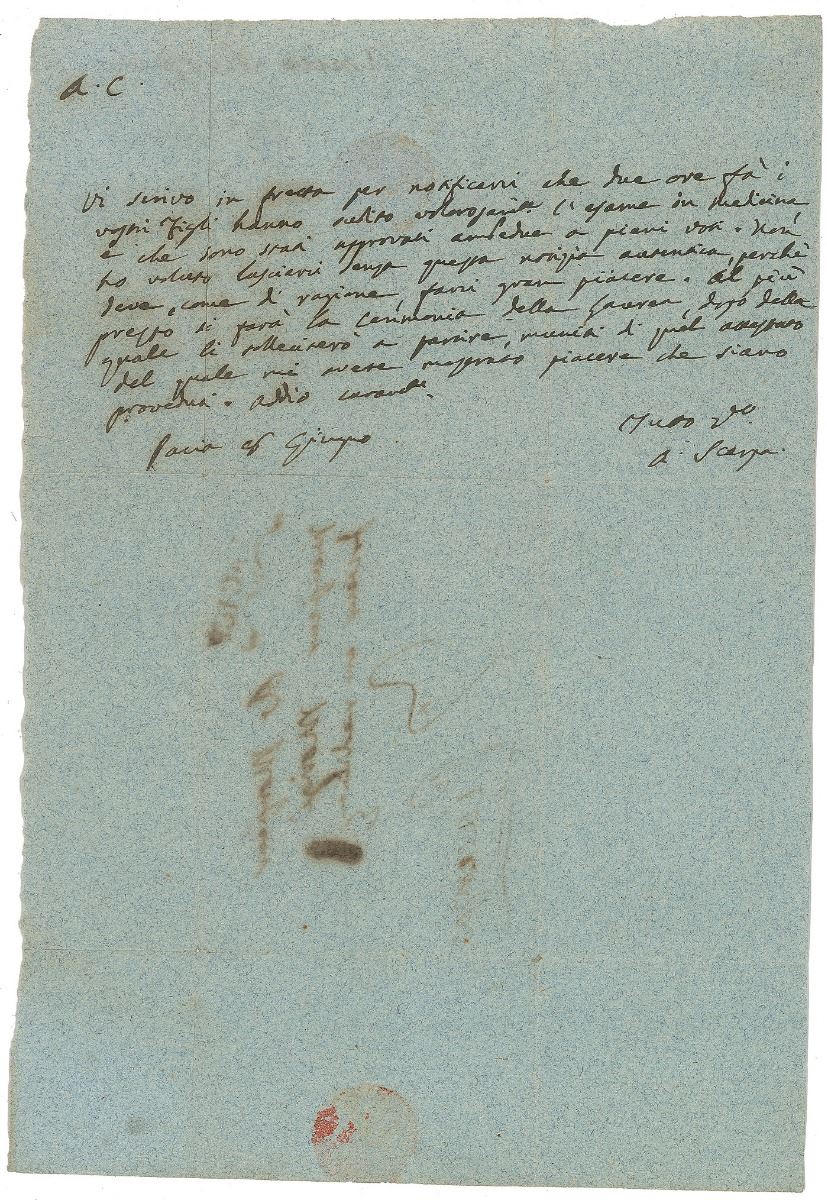 A. C.
Vi scrivo in fretta per notificarvi che due ore fà i
vostri Figli hanno subito valorosamte. l'esame in medicina,
e che sono stati approvati ambedue a pieni voti. Non
ho voluto lasciarvi senza questa notizia autentica, perchè
deve, come di ragione, farvi gran piacere. Al più
presto si farà la cerimonia della Laurea, dopo della
quale li solleciterò a partire, muniti di quel attestato
del quale mi avete mostrato piacere che siano
proveduti. Addio caramte.
Pavia Giugno
Tutto Vro.
A. Scarpa.